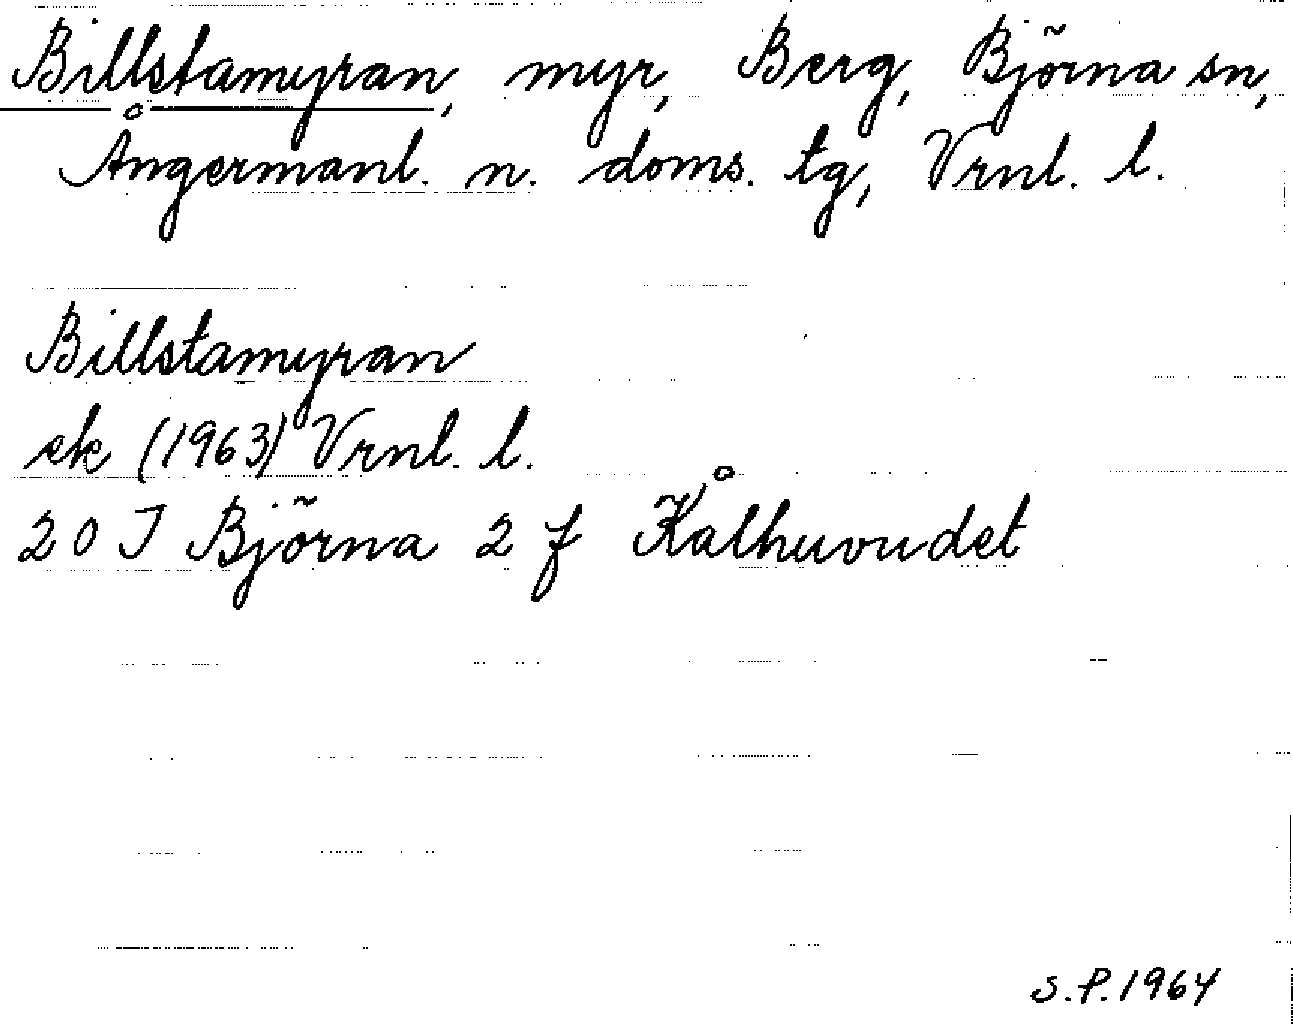 Billstamyran, myr, Berg, Björna sn,
Ångermanl. n. doms. tg, Vrnl. l.
Billstamyran
ek (1963) Vrnl. l.
20 J Björna 2 f Kålhuvudet
S.P. 1964